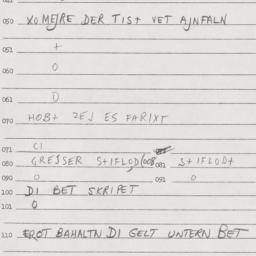 050 XOMEJRE DER TIS+ VET AJNFALN
051 +
060 O
061 O
070 HOB+ ZEJ ES FARIXT
071 CI
080 GRESSER S+IFLOD(008 081 S+IFLOD+
090 O 091 O
100 DI BET SKRIPET
101 O
110 EROT BAHALTN DI GELT UNTERN BET